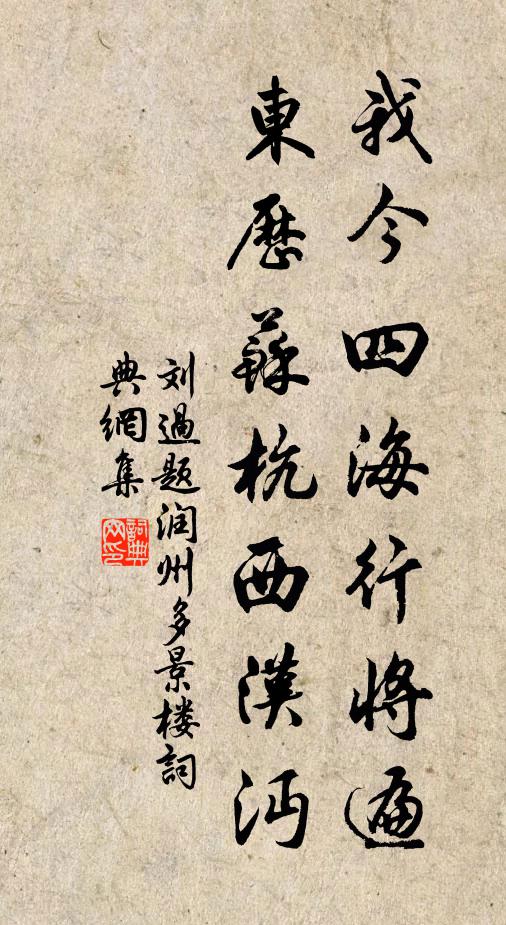 我今四海行将遍
東歷蘇杭西漢沔
刘過题润州多景楼詞
典網集
詞典网印